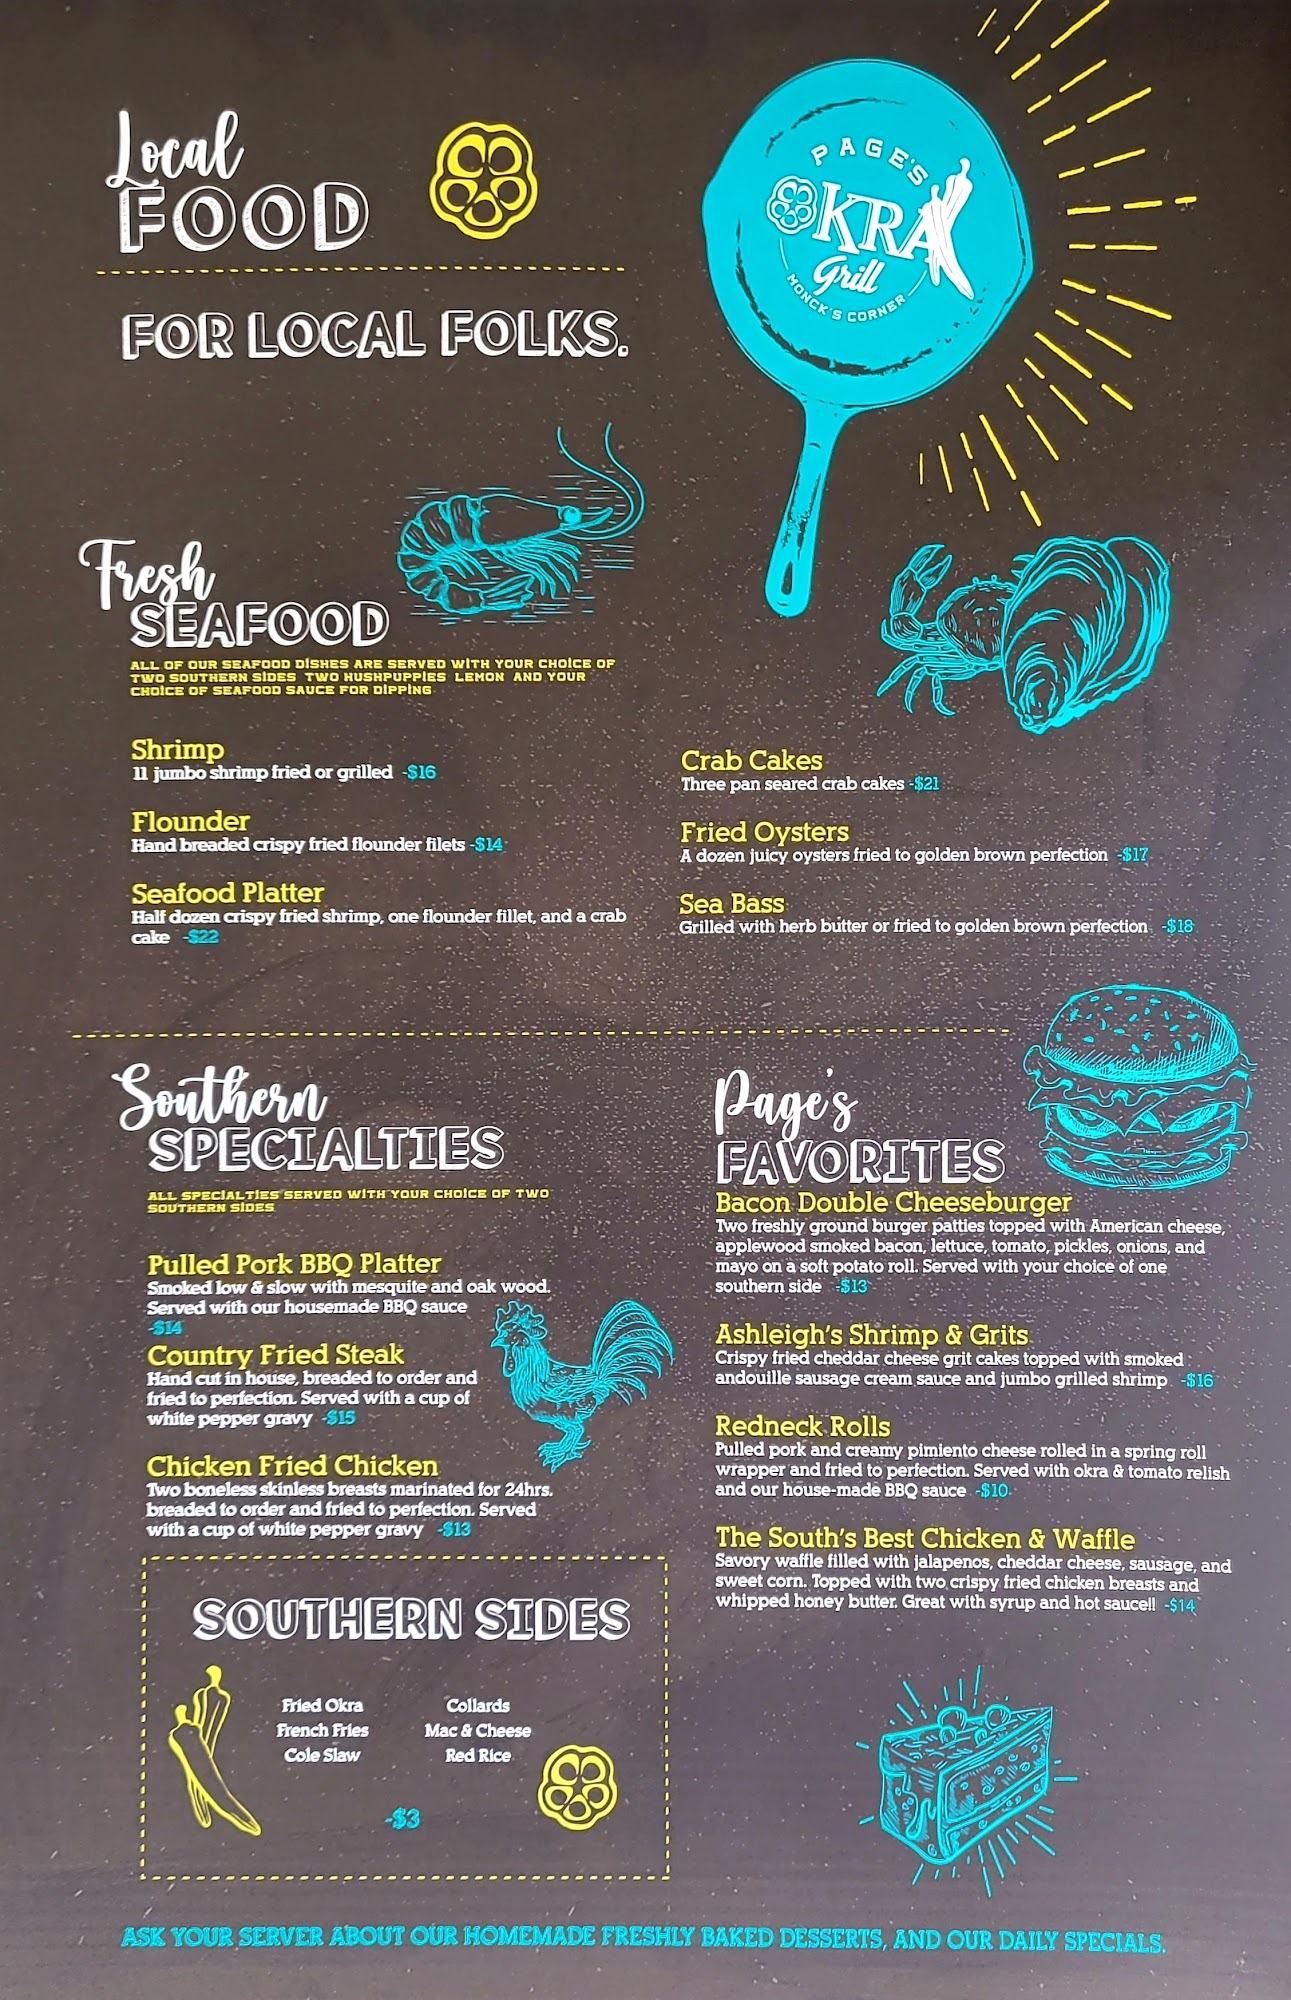 Local
FOOD
FOR LOCAL FOLKS.
PAGE'S
OKRA
Grill
MONCK'S CORNER
Fresh
SEAFOOD
ALL OF OUR SEAFOOD DISHES ARE SERVED WITH YOUR CHOICE OF
TWO SOUTHERN SIDES TWO HUSHPUPPIES LEMON AND YOUR
CHOICE OF SEAFOOD SAUCE FOR DIPPING
Shrimp
11 jumbo shrimp fried or grilled -$16
Flounder
Hand breaded crispy fried flounder filets -$14
Seafood Platter
Half dozen crispy fried shrimp, one flounder fillet, and a crab
cake -$22
Crab Cakes
Three pan seared crab cakes -$21
Fried Oysters
A dozen juicy oysters fried to golden brown perfection -$17
Sea Bass
Grilled with herb butter or fried to golden brown perfection -$18
Southern
SPECIALTIES
ALL SPECIALTIES SERVED WITH YOUR CHOICE OF TWO
SOUTHERN SIDES
Pulled Pork BBQ Platter
Smoked low & slow with mesquite and oak wood.
Served with our housemade BBQ sauce
-$14
Country Fried Steak
Hand cut in house, breaded to order and
fried to perfection. Served with a cup of
white pepper gravy -$15
Chicken Fried Chicken
Two boneless skinless breasts marinated for 24hrs.
breaded to order and fried to perfection. Served
with a cup of white pepper gravy -$13
Page's
FAVORITES
Bacon Double Cheeseburger
Two freshly ground burger patties topped with American cheese,
applewood smoked bacon, lettuce, tomato, pickles, onions, and
mayo on a soft potato roll. Served with your choice of one
southern side -$13
Ashleigh's Shrimp & Grits
Crispy fried cheddar cheese grit cakes topped with smoked
andouille sausage cream sauce and jumbo grilled shrimp -$16
Redneck Rolls
Pulled pork and creamy pimiento cheese rolled in a spring roll
wrapper and fried to perfection. Served with okra & tomato relish
and our house-made BBQ sauce -$10
The South's Best Chicken & Waffle
Savory waffle filled with jalapenos, cheddar cheese, sausage, and
sweet corn. Topped with two crispy fried chicken breasts and
whipped honey butter. Great with syrup and hot sauce!! -$14
SOUTHERN SIDES
Fried Okra
French Fries
Cole Slaw
Collards
Mac & Cheese
Red Rice
-$3
ASK YOUR SERVER ABOUT OUR HOMEMADE FRESHLY BAKED DESSERTS, AND OUR DAILY SPECIALS.